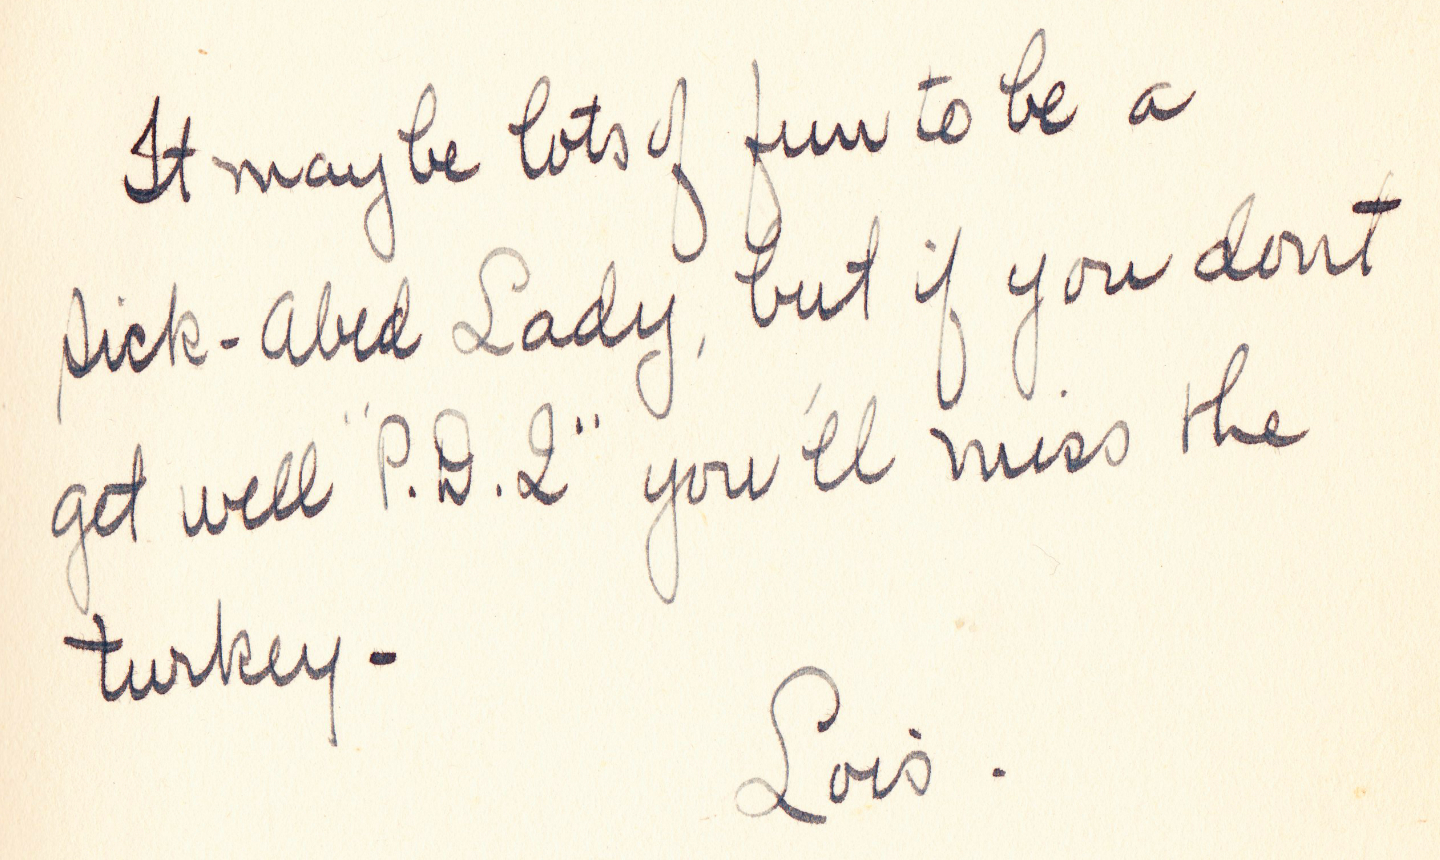 It may be lots of fun to be a
sick-Abed Lady, but if you don't
get well "P.D.Q" you'll miss the
turkey-
Lois.